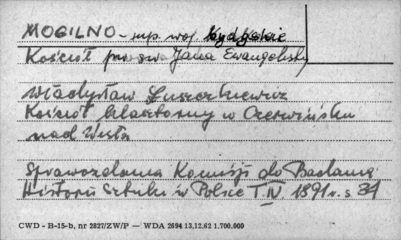 MOGILNO - mp. woj. bydgoskie
Kościół pw. św. Jana Ewangelisty
Władysław Łuszczkiewicz
Kościół klasztorny w Czerwińsku
nad Wisłą
Sprawozdania Komisji do Badania
Historii Sztuki w Polsce T IV. 1891 r. s 84
CWD - B-15-b, nr 2827/ZW/P — WDA 2694 13.12.62 1.700.000